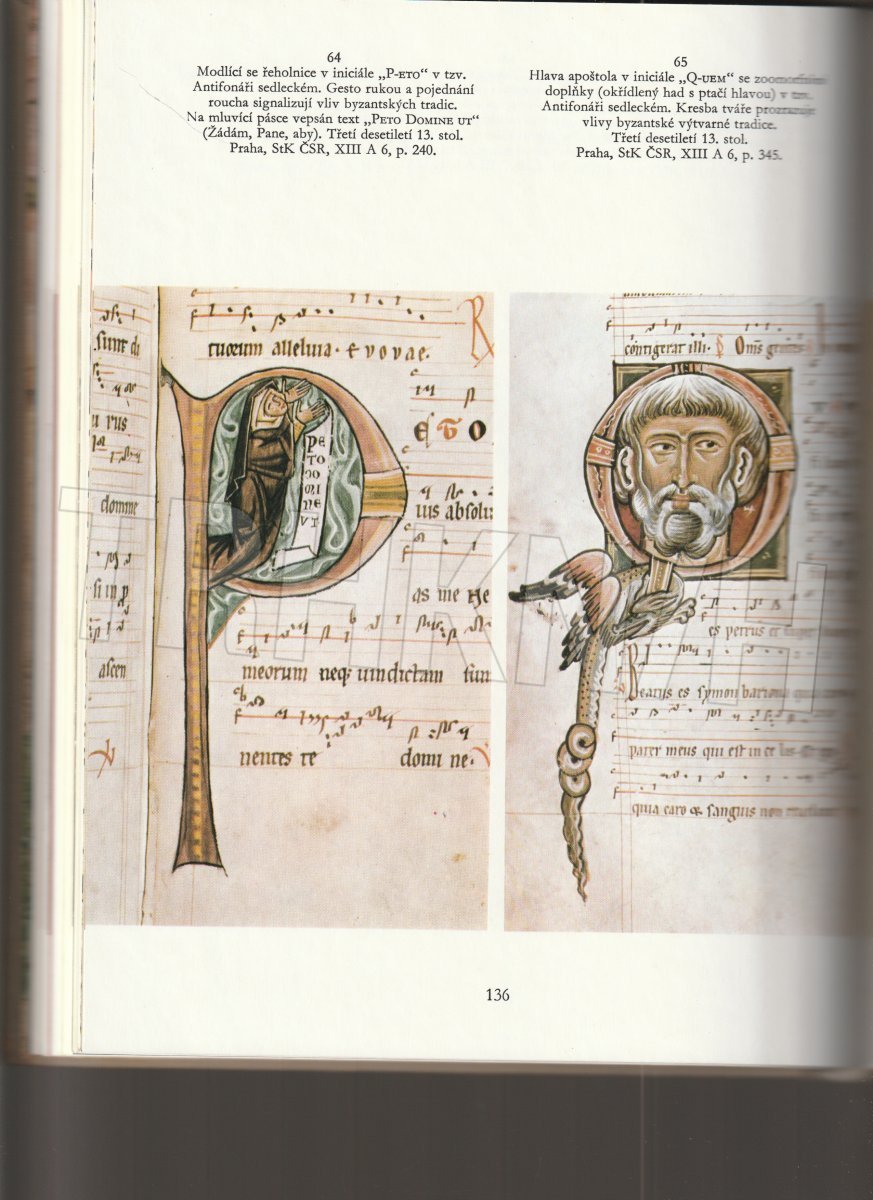 64
Modlící se řeholnice v iniciále „P-ETO“ v tzv.
Antifonáři sedleckém. Gesto rukou a pojednání
roucha signalizují vliv byzantských tradic.
Na mluvící pásce vepsán text „PETO DOMINE UT“
(Žádám, Pane, aby). Třetí desetiletí 13. stol.
Praha, StK ČSR, XIII A 6, p. 240.
65
Hlava apoštola v iniciále „Q-UEM“ se zoomorfními
doplňky (okřídlený had s ptačí hlavou) v tzv.
Antifonáři sedleckém. Kresba tváře prozrazuje
vlivy byzantské výtvarné tradice.
Třetí desetiletí 13. stol.
Praha, StK ČSR, XIII A 6, p. 345.
sunt di
rus
domine
ascen
tuorum alleluia. evovae.
ETO
PE
TO
DO
MI
NE
VT
ius absolu
as me
meorum neq; vindictam sum
nentes te domine.
contigerat illi. Oms
es petrus et super
Beatus es symon bariona
pater meus qui est in celis
quia caro & sanguis non
136